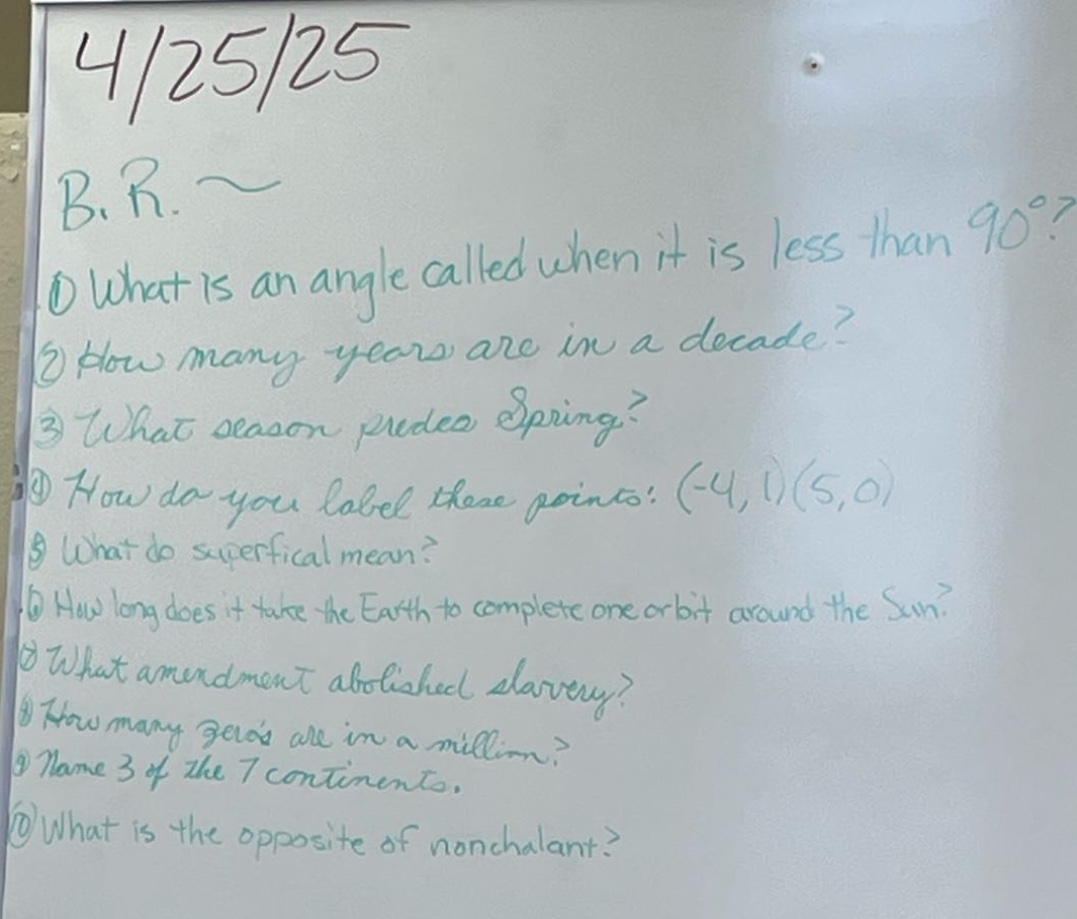 4/25/25
B.R. ~
① What is an angle called when it is less than 90°?
② How many years are in a decade?
③ What season predes Spring?
④ How do you label these points: (-4,1)(5,0)
⑤ What do superfical mean?
⑥ How long does it take the Earth to complete one orbit around the Sun?
⑦ What amendment abolished slavery?
⑧ How many zero's are in a million?
⑨ Name 3 of the 7 continents.
⑩ What is the opposite of nonchalant?